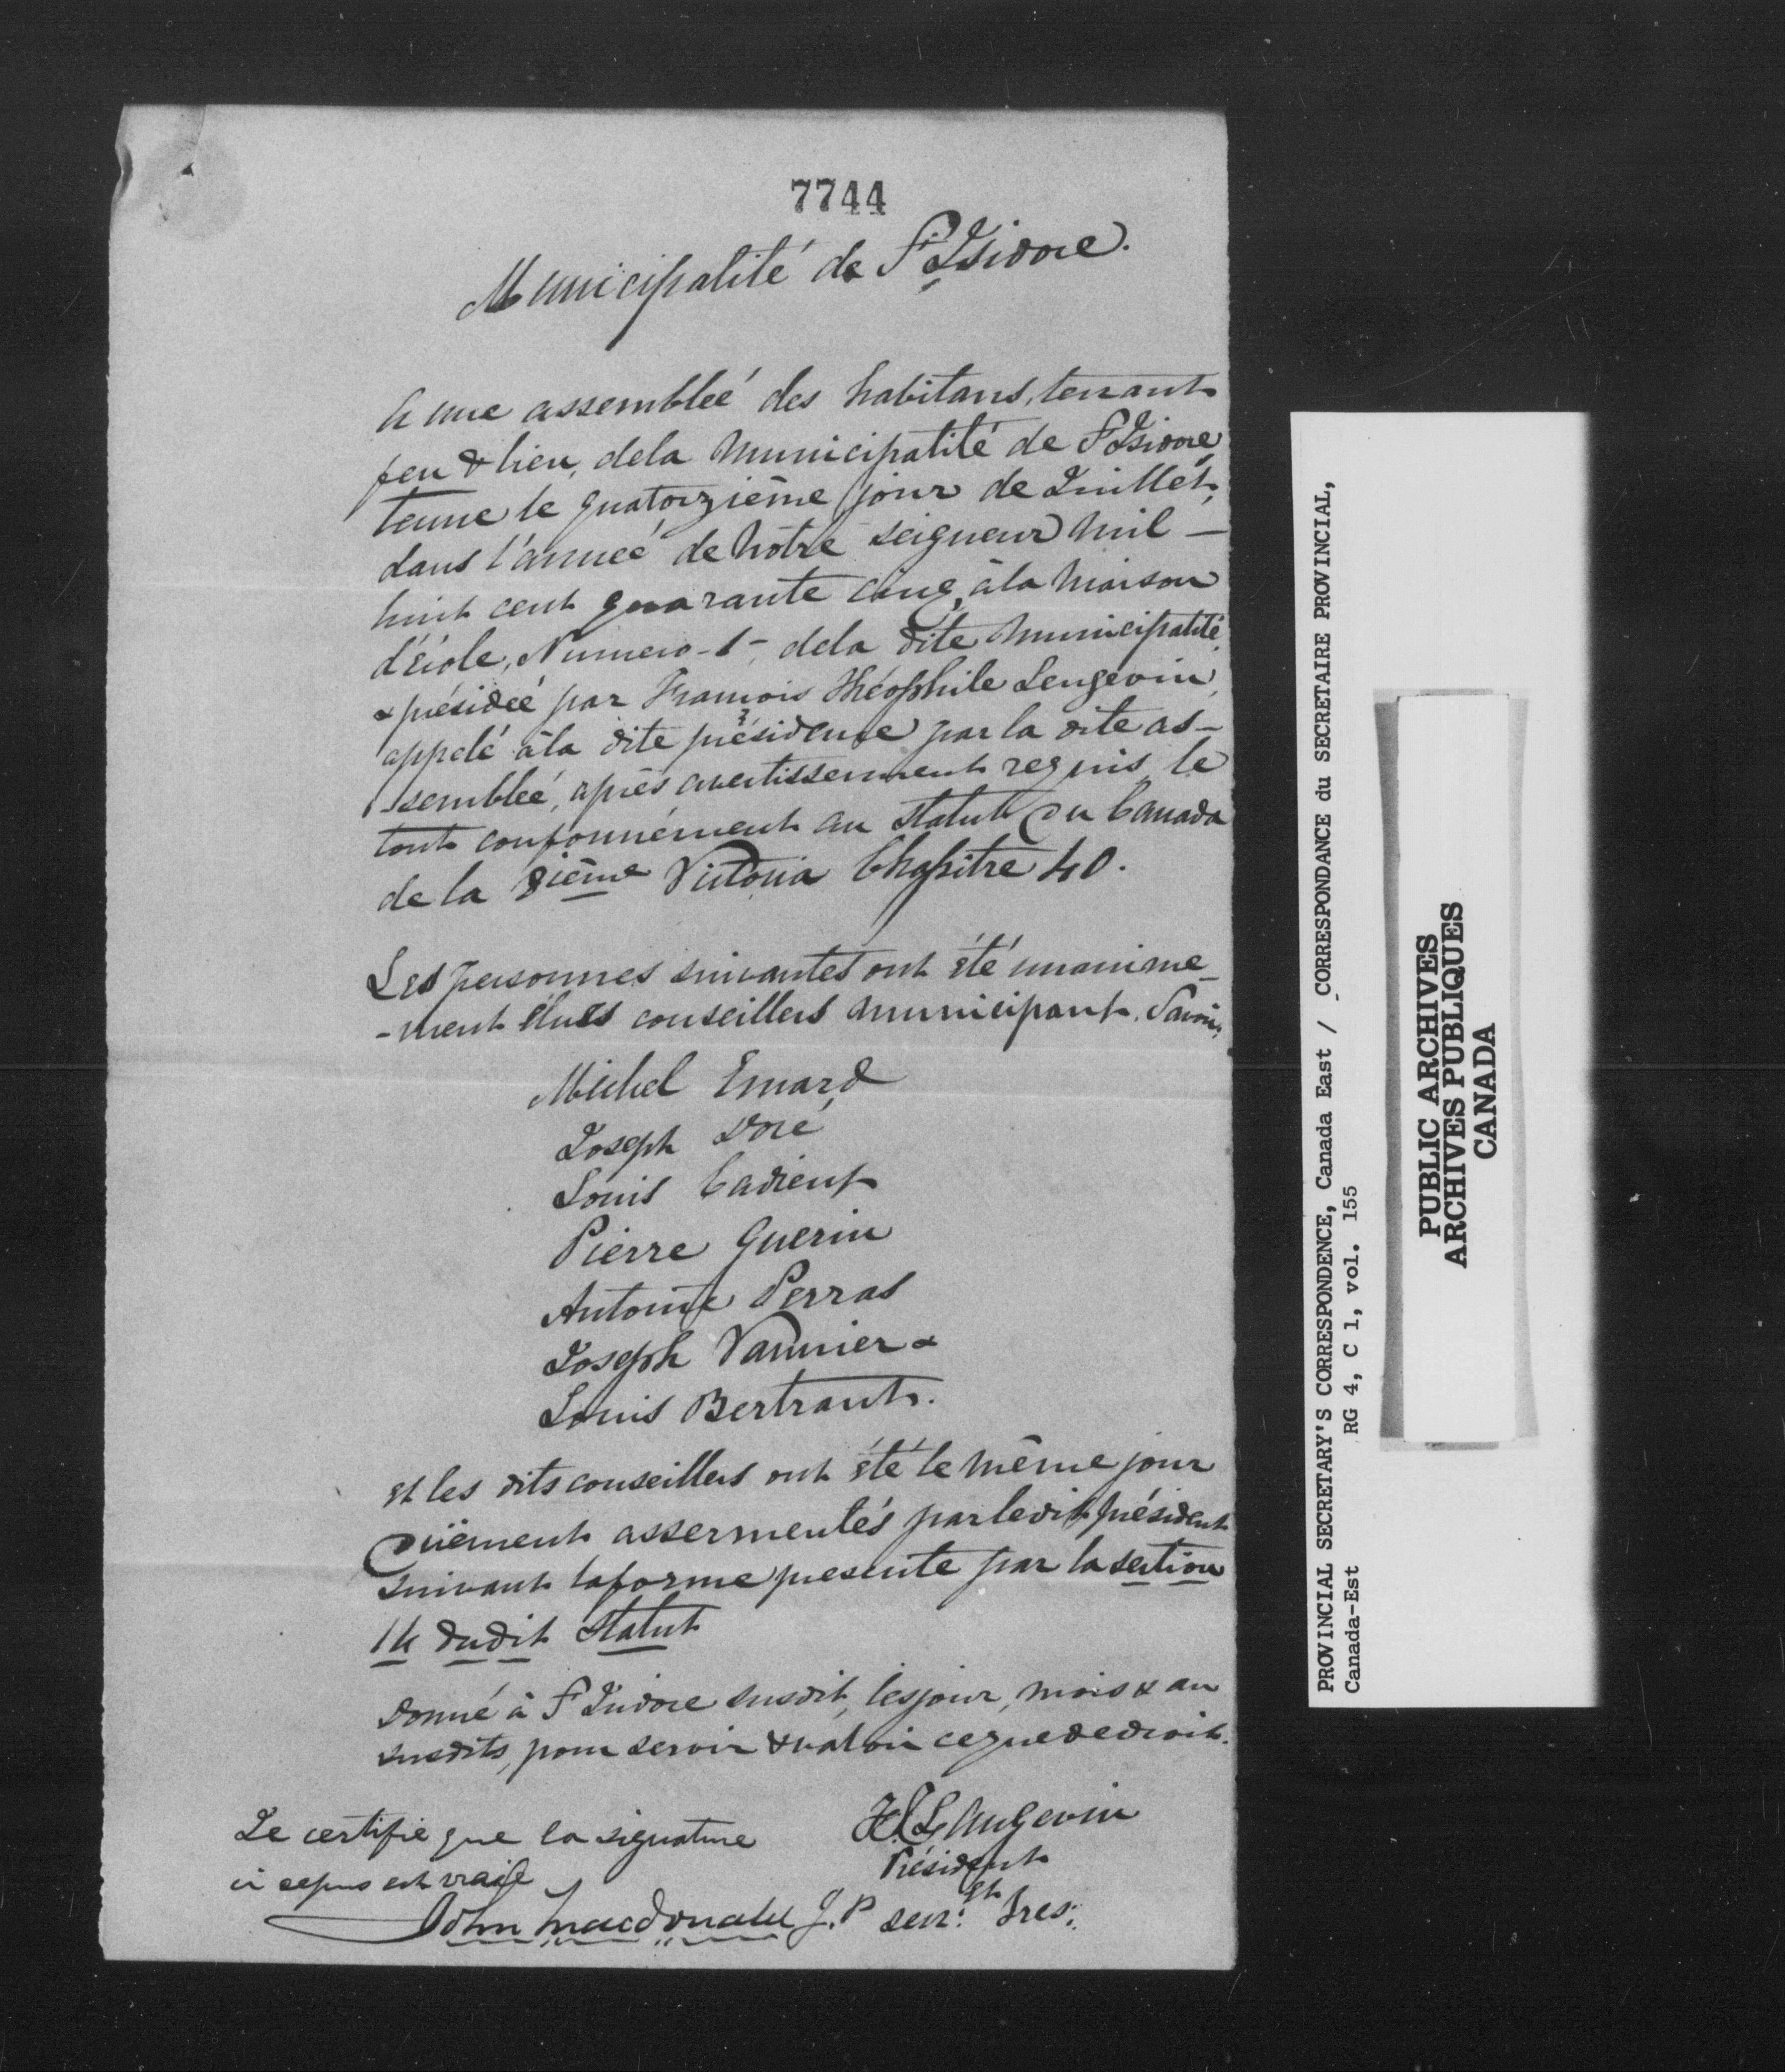 7744
Municipalité de St Isidore.
A une assembleé des habitans, tenant
feu & lieu, dela Municipalité de St Isidore
tenue le quatorziême jour de Juillet,
dans l'anneé de Nôtre seigneur Mil -
huit cent quarante cinq, àla Maison
d'école, Numero -1-, dela dite Municipalité,
& présideé par François Théophile Langevin,
appelé àla dite présidence par la dite as-
-sembleé, après avertissement requis, le
tout conformément au Statut du Canada
de la 8ième Victoria Chapitre 40.
Les personnes suivantes ont été unanime-
-ment élues conseillers Municipaux. Savoir,
Michel Emard
Joseph Doré
Louis Cadieux
Pierre Guerin
Antoine Perras
Joseph Vannier &
Louis Bertrant.
et les dits conseillers ont été le même jour
duëment assermentés par le dit président
suivant la forme prescrite par la section
14 dudit Statut
Donné à St Isidore susdit, les jour, mois & an
susdits, pour servir & valoir ce que de droit.
Je certifie que la signature
ci dessus est vraie
John Macdonald J.P
Langevin
Président
et
secr: Tres:
PROVINCIAL SECRETARY'S CORRESPONDENCE, Canada East / CORRESPONDANCE du SECRETAIRE PROVINCIAL,
Canada-Est RG 4, C 1, vol. 155
PUBLIC ARCHIVES
ARCHIVES PUBLIQUES
CANADA